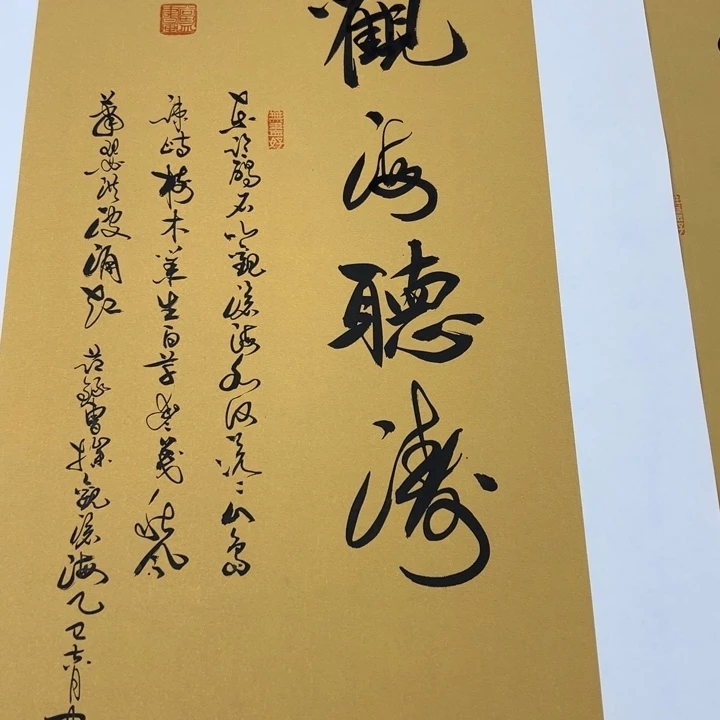 觀海聽濤
東臨碣石以觀滄海水何澹〻山島
竦峙樹木叢生百草豐茂秋風
蕭瑟洪波涌起 錄曹操觀滄海乙巳六月